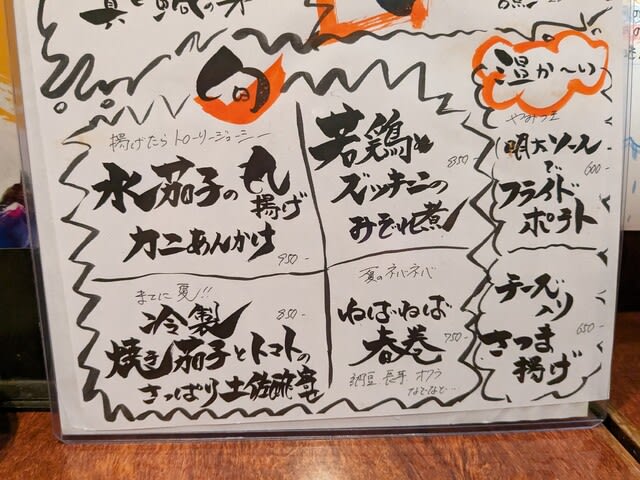 旬
揚げたらトローリージューシー
水茄子の丸揚げ
カニあんかけ
950-
若鶏と
ズッキーニの
みぞれ煮
850-
まさに夏!!
冷製
850-
焼き茄子とトマトの
さっぱり土佐酢
夏のネバネバ
ねばねば
春巻
750-
納豆 長芋 オクラ
などなど…
温か〜い
やみつき
明太ソース
で
600-
フライド
ポテト
チーズ入り
さつま
揚げ
650-